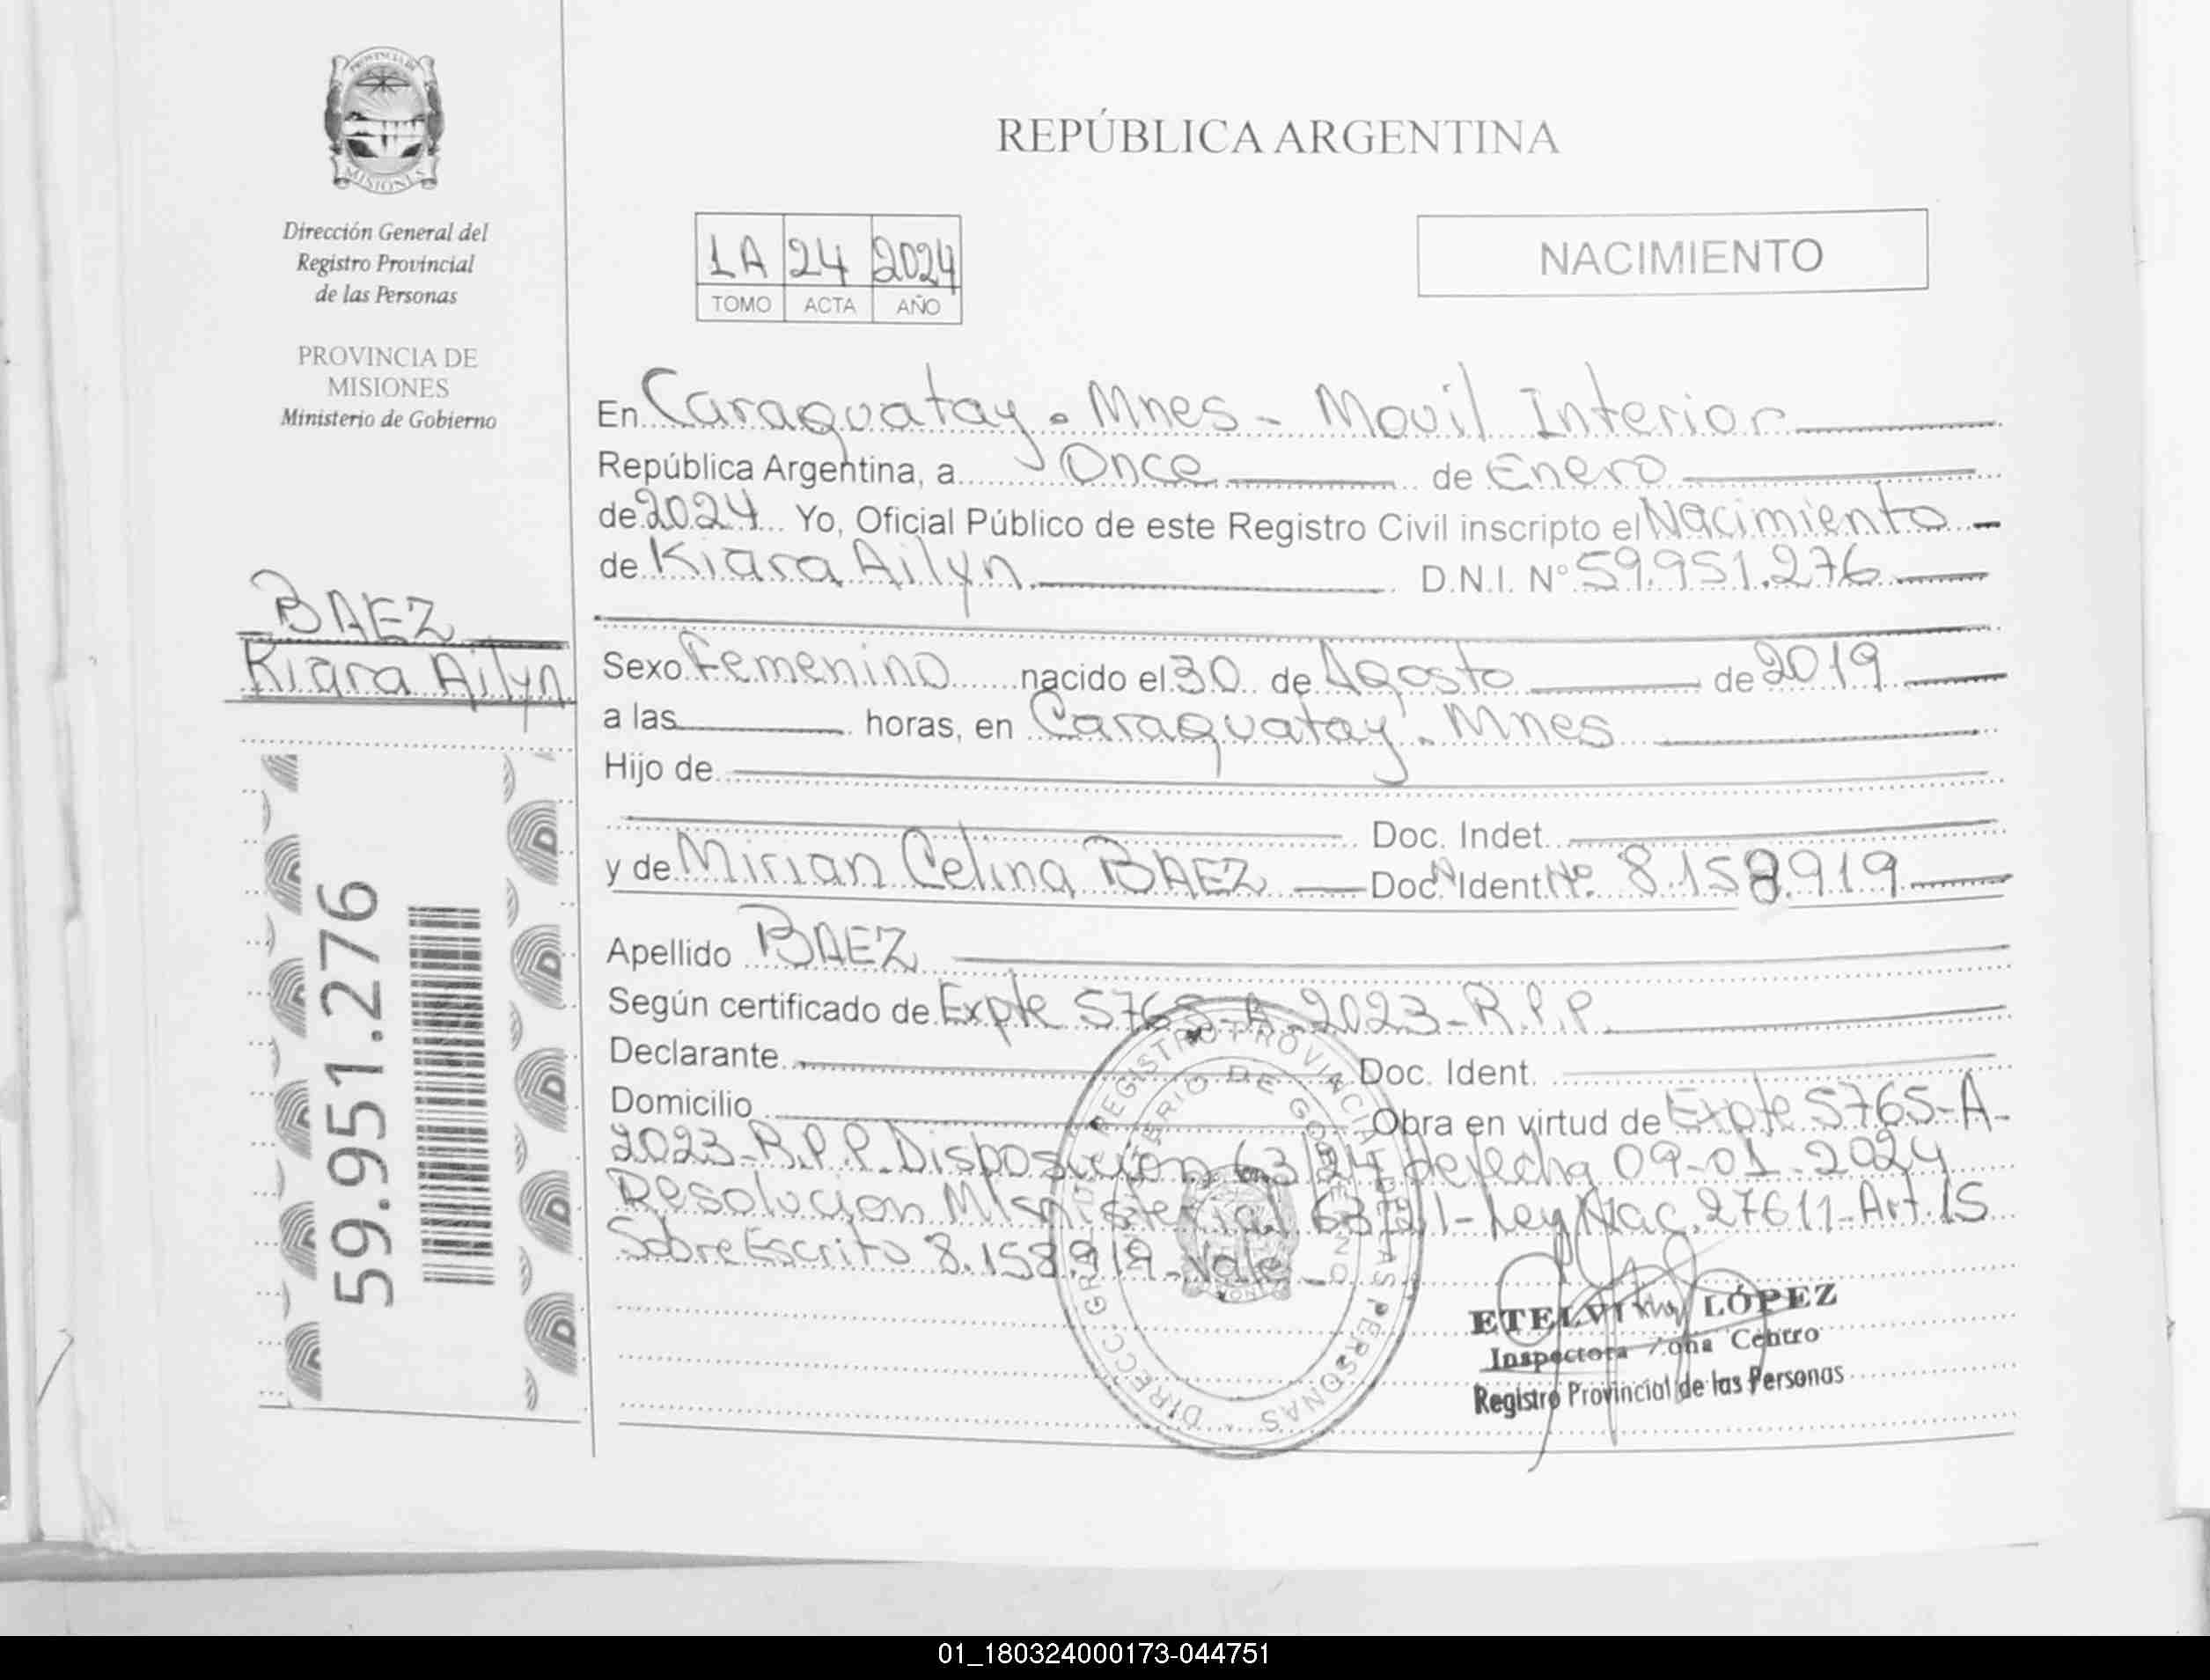 PROVINCIA DE
MISIONES
Dirección General del
Registro Provincial
de las Personas
PROVINCIA DE
MISIONES
Ministerio de Gobierno
BAEZ
Kiara Ailyn
59.951.276
REPÚBLICA ARGENTINA
1A 24 2024
TOMO ACTA AÑO
NACIMIENTO
En Caraguatay - Mnes - Movil Interior
República Argentina, a Once de Enero
de 2024 Yo, Oficial Público de este Registro Civil inscripto el Nacimiento
de Kiara Ailyn D.N.I. N° 59.951.276
Sexo Femenino nacido el 30 de Agosto de 2019
a las horas, en Caraguatay - Mnes
Hijo de
Doc. Indet.
y de Mirian Celina BAEZ Doc. Ident. N° 8.158.919
Apellido BAEZ
Según certificado de Expte 5765-A-2023-R.P.P.
Declarante Doc. Ident.
Domicilio Obra en virtud de Expte 5765-A-
2023-R.P.P. Disposicion 63/24 de fecha 09-01-2024
Resolucion Ley Nac. 27611-Art. 15
Sobre Escrito 8.158.919 - Vale
DIRECC. GRAL. DEL REGISTRO PROVINCIAL DE LAS PERSONAS
MINISTERIO DE GOBIERNO
LÓPEZ
Inspectora Zona Centro
Registro Provincial de las Personas
01_180324000173-044751